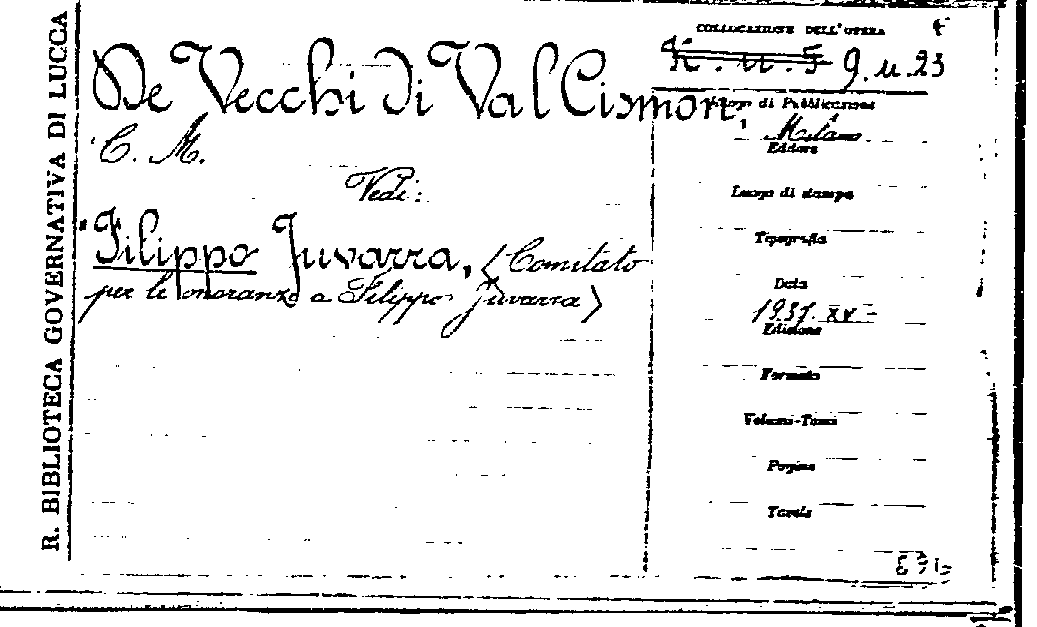 R. BIBLIOTECA GOVERNATIVA DI LUCCA
De Vecchi di Val Cismon,
C. M.
Vedi:
Filippo Juvarra, (Comitato
per le onoranze a Filippo Juvarra)
COLLOCAZIONE DELL'OPERA
9. u. 23
Luogo di Pubblicazione
Milano
Editore
Luogo di stampa
Tipografia
Data
1937. XV -
Edizione
Formato
Volumi-Tomi
Pagine
Tavole